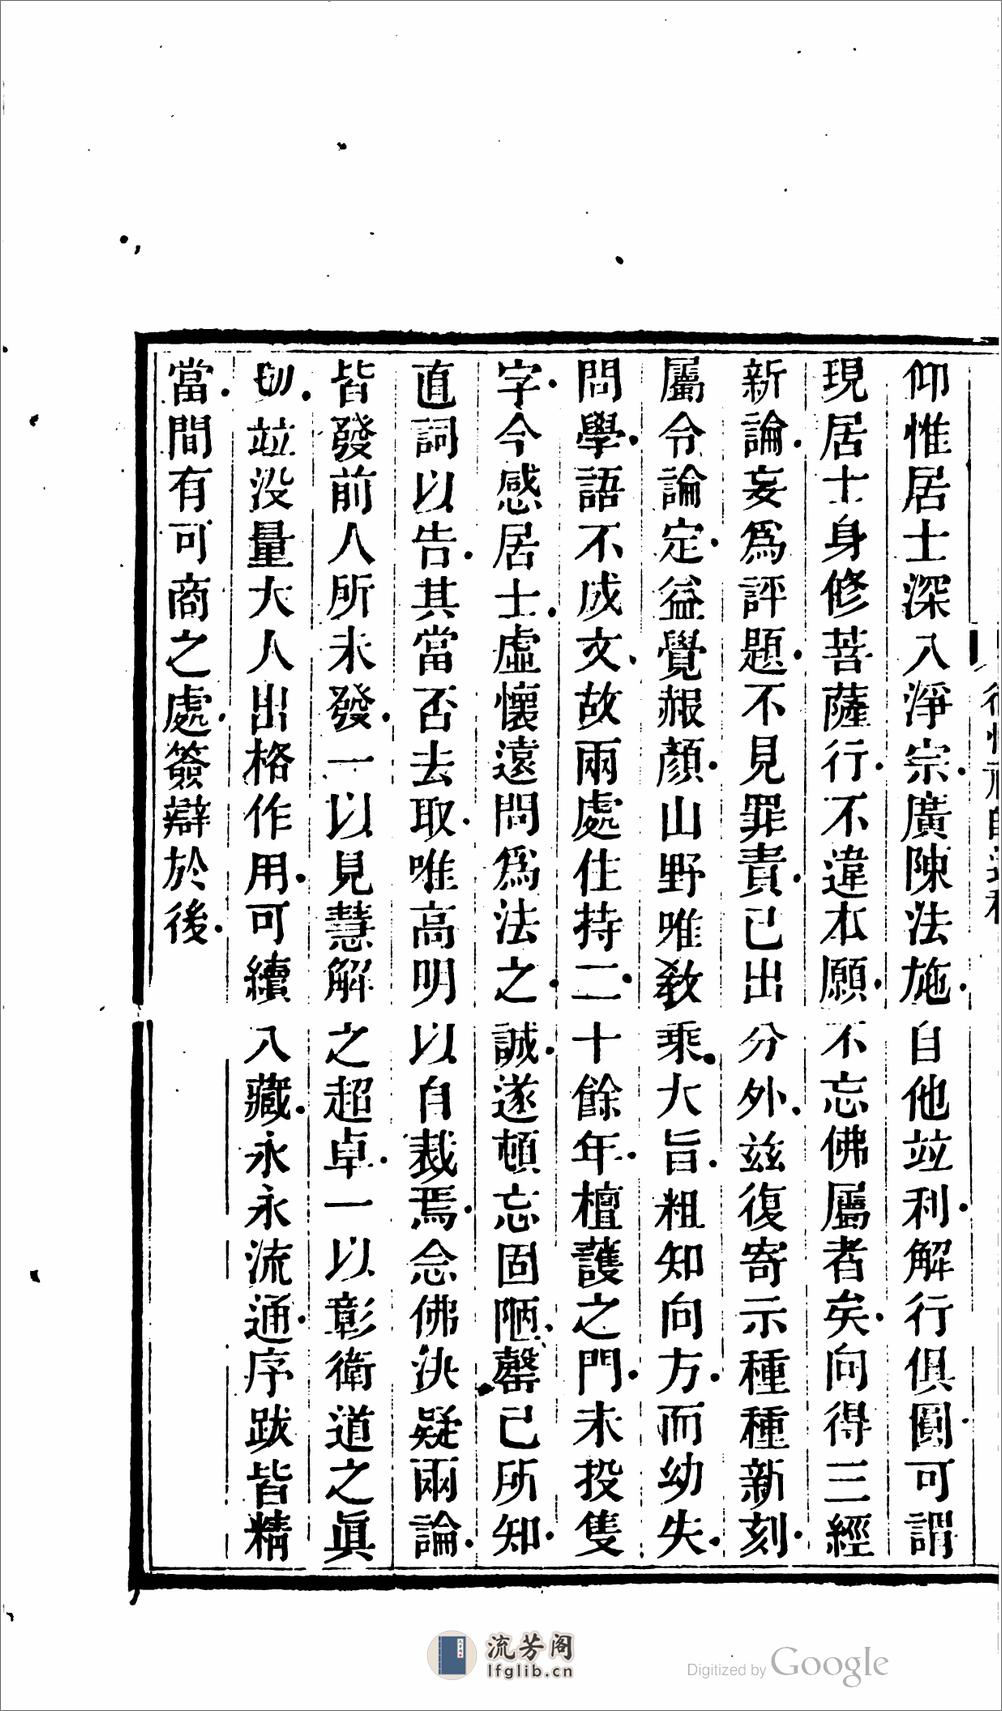 仰惟居士深入淨宗廣陳法施自他竝利解行俱圓可謂
現居士身修菩薩行不違本願不忘佛屬者矣向得三經
新論妄爲評題不見罪責已出分外兹復寄示種種新刻
屬令論定益覺赧顏山野唯教乘大旨粗知向方而幼失
問學語不成文故兩處住持二十餘年檀護之門未投隻
字今感居士虛懷遠問爲法之誠遂頓忘固陋罄己所知
直詞以告其當否去取唯高明以自裁焉念佛決疑兩論
皆發前人所未發一以見慧解之超卓一以彰衛道之眞
切竝没量大人出格作用可續入藏永永流通序跋皆精
當間有可商之處簽辯於後
流芳阁
lfglib.cn
Digitized by Google